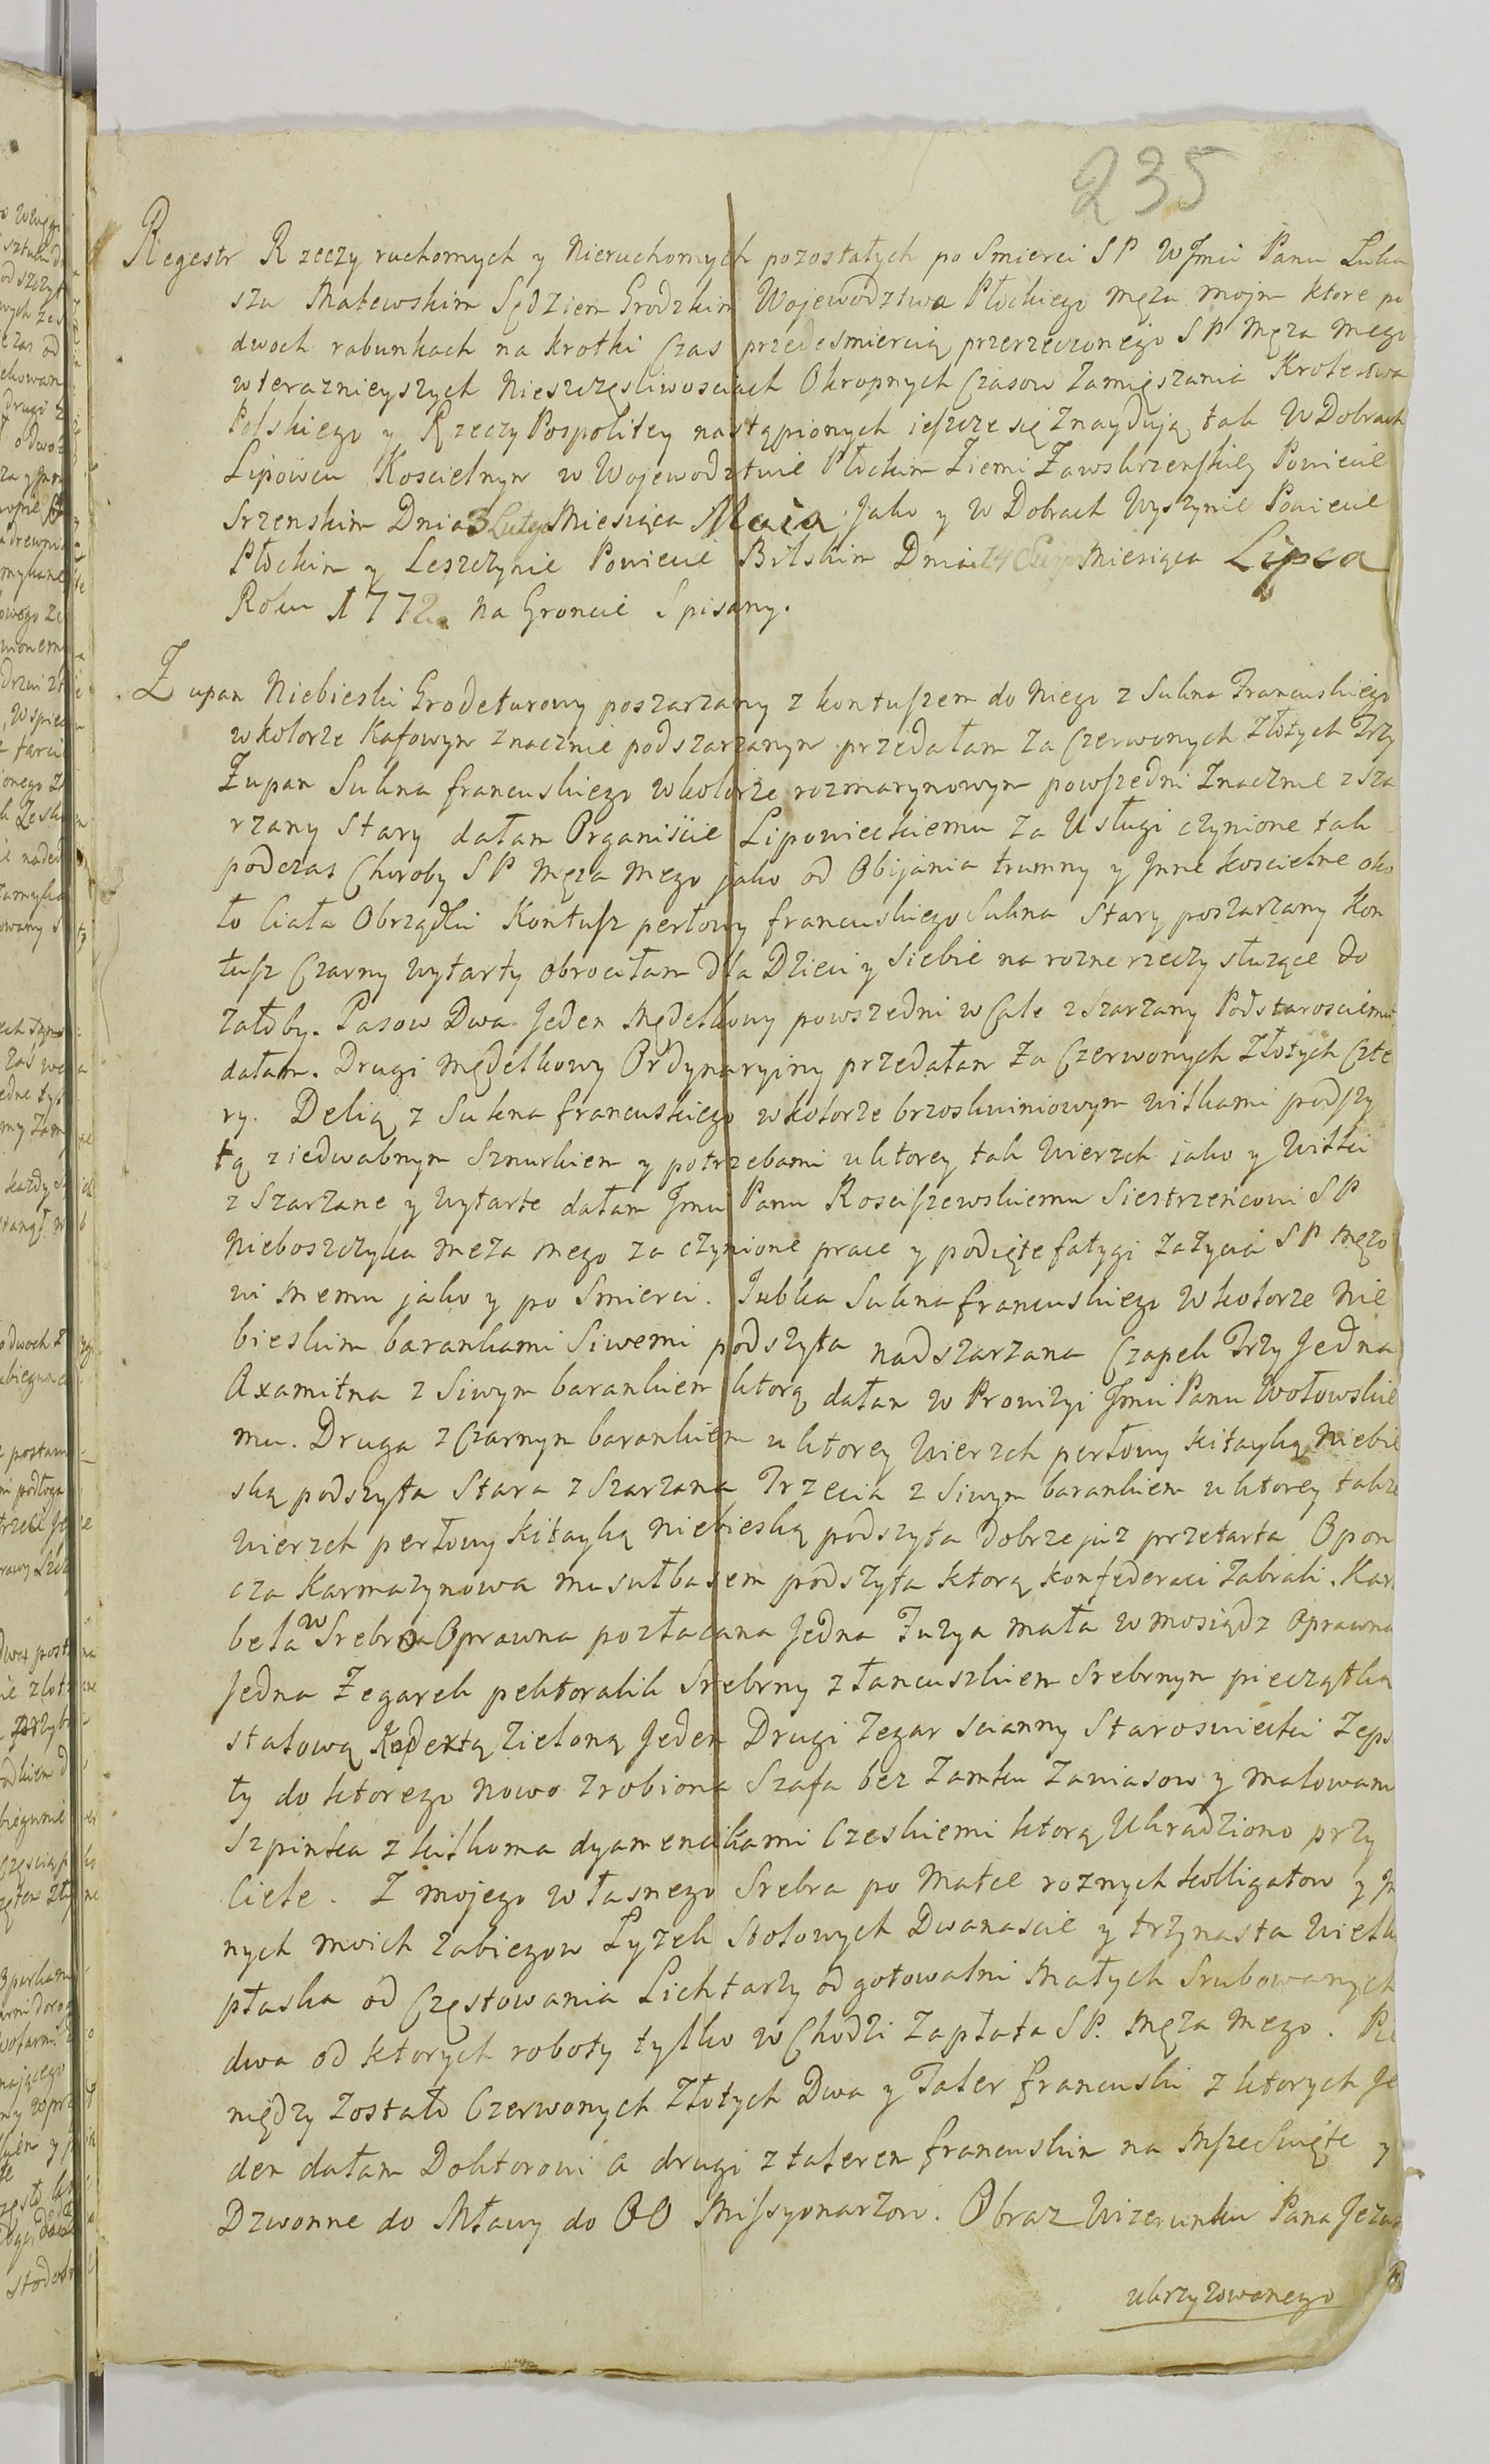 235
Regestr Rzeczy ruchomych y Nieruchomych pozostałych po Smierci SP WJmci Panu Luka
szu Malewskim Sędziem Grodzkim Wojewodztwa Płockiego męza mojm ktore po
dwoch rabunkach na krotki Czas przedesmiercią przerzeczonego SP Męza mego
wteraznieyszych Nieszczęsliwosciach Okropnych Czasow Zamięszania Krolestwa
Polskiego y Rzeczy Pospolitey nastąpionych ieszcze się Znayduią tak W Dobrach
Lipowcu Koscielnym w Wojewodztwie Płockim Ziemi Zawskrzenskiey Powiecie
Srzenskim Dnia 3 Miesiąca Maia Jako y W Dobrach Wyszynie Powiecie
Płockim y Leszczynie Powiecie Bilskim Dnia Miesiąca Lipca
Roku 1772. Na Groncie Spisany.
Zupan Niebieski Grodeturowy poszarzany z kontuszem do Niego z Sukna Francuskiego
wkolorze Kafowym znacznie podszarzanym przedałam za Czerwonych Złotych Trzy
Zupan Sukna francuskiego wkolorze rozmarynowym powszedni Znacznie zSza
rzany Stary dałam Organiscie Lipowieckiemu za Usługi czynione tak
podczas Choroby SP Męza Mego jako od Obijania trumny y Jnne koscielne oko
ło Ciała Obrządki Kontusz perłowy francuskiego Sukna Stary poszarzany Kon
tusz Czarny wytarty obrociłam dla Dzieci y Siebie na rozne rzeczy słuzące do
załoby. Pasow Dwa Jeden Mędelkowy powszedni wCale zSzarzany Podstarosciemu
dałam. Drugi mędelkowy Ordynaryiny przedałam Za Czerwonych Złotych Czte
ry. Delią z Sukna francuskiego wkolorze brzoskwiniowym wilkami podszy
tą z iedwabnym Sznurkiem y potrzebami uktorey tak Wierzch iako y Wilki
zSzarzane y wytarte dałam Jmu Panu Rosciszewskiemu Siestrzencowi SP
Nieboszczyka meza mego za czynione prace y podięte fatygi zazycia SP Męzo
wi Memu jako y po Smierci. Jubka Sukna francuskiego wkolorze Nie
bieskim barankami Siwemi podszyta nadszarzana Czapek Trzy Jedna
Axamitna z Siwym barankiem ktorą dałam w Prowizyi Jmci Panu Wołowskie
mu. Druga z Czarnym barankiem uktorey Wierzch perłowy kitayką Niebie
ską podszyta Stara zSzarzana Trzecia z Siwym barankiem uktorey takze
Wierzch perłowy kitayką niebieską podszyta Dobrze juz przetarta Opon
cza Karmazynowa musułbasem podszyta ktorą konfederaci Zabrali. Kar
bela w Srebro Oprawna pozłacana Jedna Fuzya mała w mosiądz Oprawna
Jedna Zegarek pektoralik Srebrny z łancuszkiem Srebrnym pieczątką
stalową Zieloną Jeden Drugi Zegar scianny Staroswiecki Zeps
ty do ktorego Nowo Zrobiona Szafa bez Zamku Zawiasow y malowani
Szpinka z kilkoma dyamencikami Czeskiemi ktorą Ukradziono przy
Ciele. Z mojego własnego Srebra po Matce roznych kolligatow y Jn
nych moich zabiegow Łyzek Stołowych Dwanascie y trzynasta Wielk
płaska od Częstowania Lichtarzy od gotowalni Małych Srubowanych
dwa od ktorych roboty tylko wChodzi Zapłata SP. Męza Mego. Pie
niędzy Zostało Czerwonych Złotych Dwa y Taler francuski z ktorych Je
den dałam Doktorowi a drugi z talerem francuskim na Msze Swięte y
Dzwonne do Mławy do OO Missyonarzow. Obraz Wizerunku Pana Jezus
ukrzyzowanego